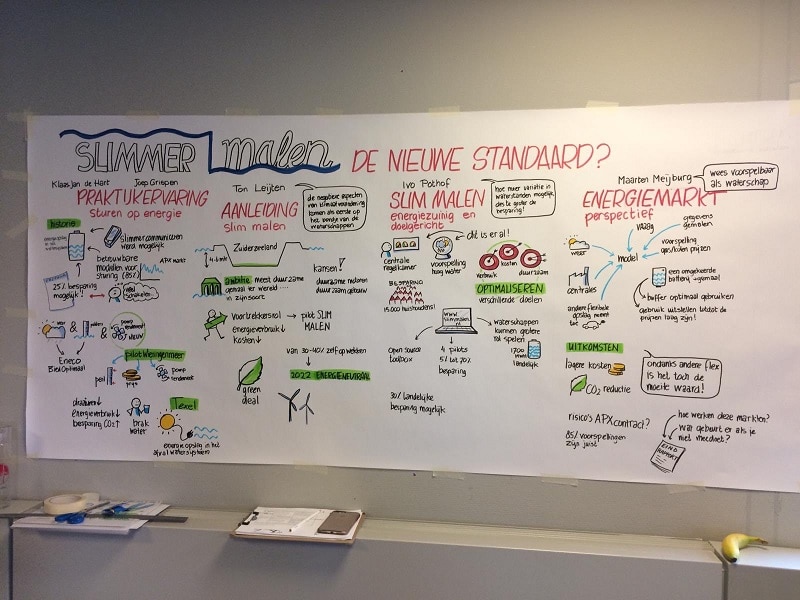 SLIMMER malen DE NIEUWE STANDAARD?
Klaasjan de Hart Joep Grispen
PRAKTIJKERVARING
sturen op energie
historie
Slimmer communiceren
werd mogelijk
betrouwbare
modellen voor
sturing (85%)
APX markt
25% besparing
mogelijk!
weer & peilen & pomp
rendement
NIEUW
Eneco
BiedOptimaal
pilot Wieringermeer
peil prijs pomp
rendement
draaiuren↓
energieverbruik↓
besparing CO2↑
brak
water
Texel
energie opslag in het
afvalwatersysteem
Ton Leijten
de negatieve aspecten
van klimaatverandering
komen als eerste op
het bordje van de
waterschappen
AANLEIDING
slim malen
Zuiderzeeland
4-6 m
ambitie meest duurzame
gemaal ter wereld ...
in zijn soort
kansen!
duurzame motoren
duurzaam gebouw
Voortrekkersrol → pikt SLIM
MALEN
energieverbruik↓
kosten↓
van 30-40% zelf opwekken
2022 ENERGIENEUTRAAL
green
deal
Ivo Pothof
hoe meer variatie in
waterstanden mogelijk
des te groter de
besparing!
SLIM MALEN
energiezuinig en
doelgericht
dit is er al!
centrale
regelkamer
voorspelling
hoog water
verbruik kosten duurzaam
BESPARING
15.000 huishoudens!
OPTIMALISEREN
verschillende doelen
www
slimmalen
.nl
Open source
toolbox
4 pilots
5% tot 70%
besparing
waterschappen
kunnen grotere
rol spelen
1700
MW
landelijk
30% landelijke
besparing mogelijk
Maarten Meijburg
wees voorspelbaar
als waterschap
ENERGIEMARKT
perspectief
weer
vraag
gegevens
gemalen
voorspelling
gas/kolen prijzen
model
centrales
andere flexibele
opslag meest
tot
een omgekeerde
batterij = gemaal
buffer optimaal gebruiken
gebruik uitstellen totdat de
prijzen laag zijn!
UITKOMSTEN
lagere kosten
CO2 reductie
ondanks andere flex
is het toch de
moeite waard!
risico's APX contract?
85% voorspellingen
zijn juist
hoe werken deze markten?
wat gebeurt er als je
niet meedoet?
EIND
RAPPORT